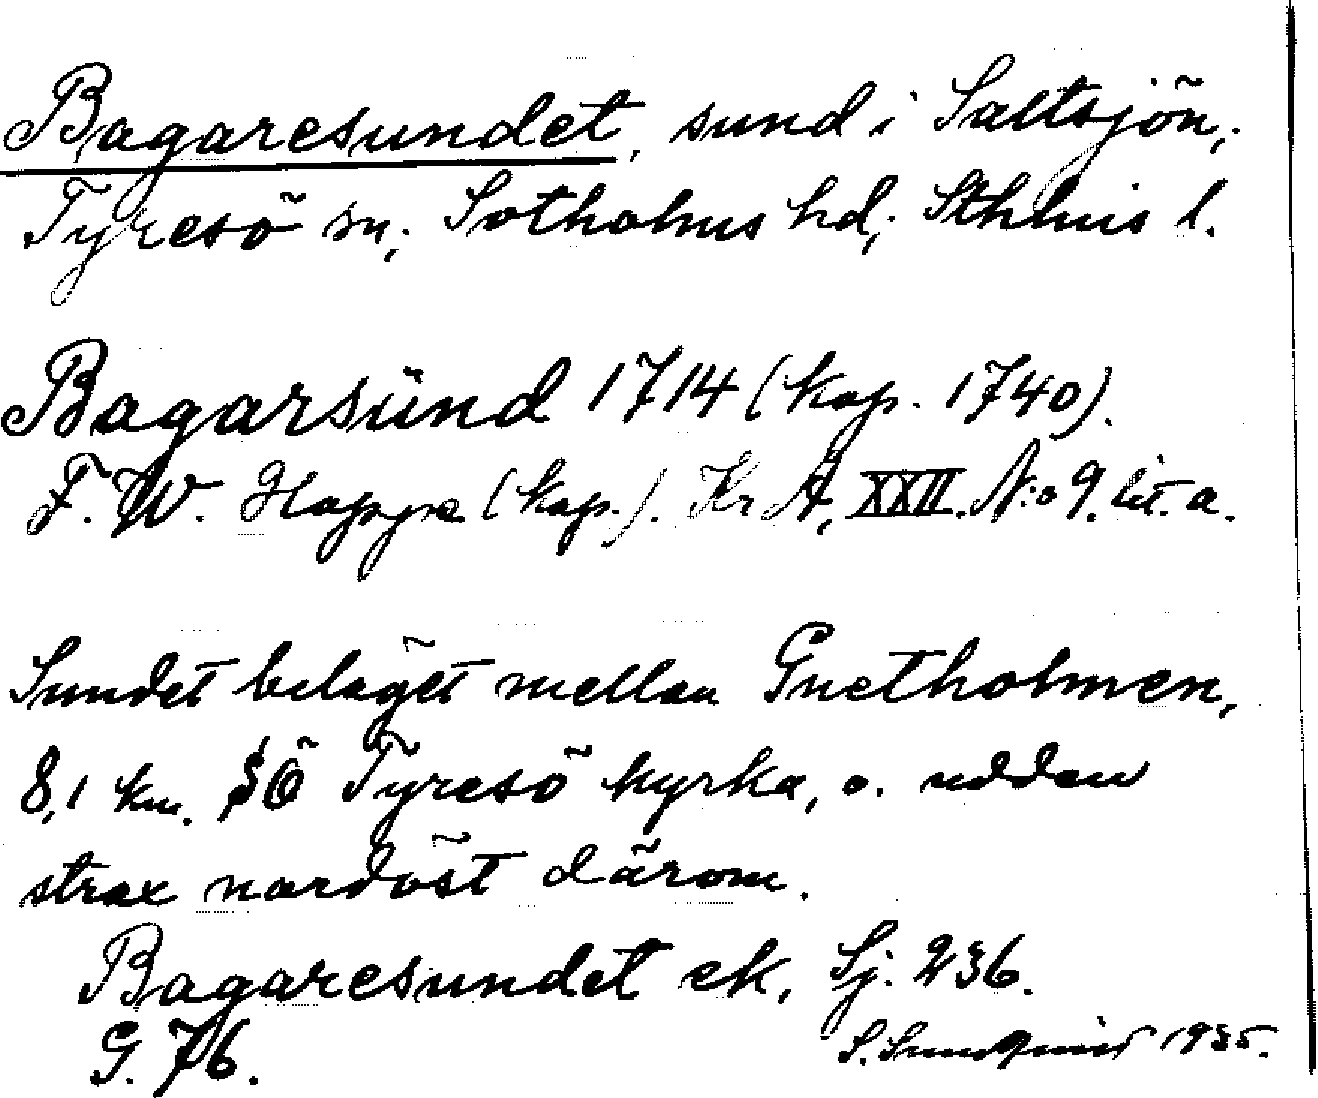 Bagaresundet, sund i Saltsjön,
Tyresö sn, Sotholms hd, Sthlms l.
Bagarsünd 1714 (kop. 1740).
F. W. Hoppe (kop.). Kr A, XXII. N:o 9. lit. a.
Sundet beläget mellan Gnetholmen,
8,1 km. SÖ Tyresö kyrka, o. udden
strax nordöst därom.
Bagaresundet ek, Sj. 236.
G. 76.
S. 1935.